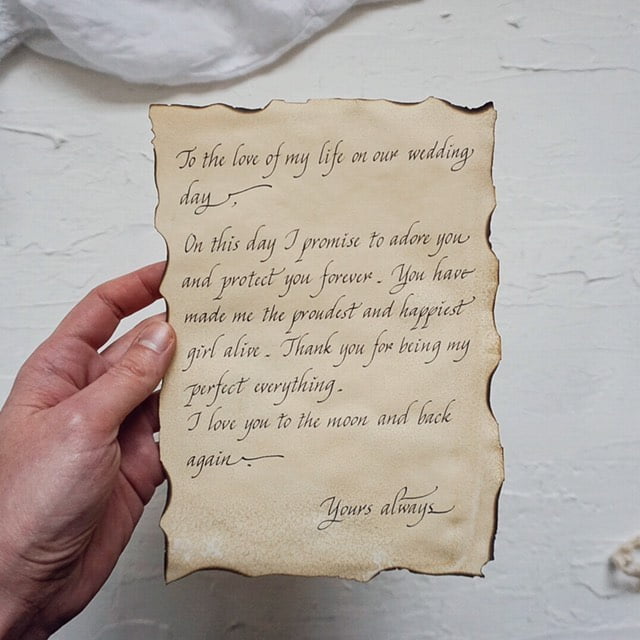 To the love of my life on our wedding
day,
On this day I promise to adore you
and protect you forever. You have
made me the proudest and happiest
girl alive. Thank you for being my
perfect everything.
I love you to the moon and back
again.
Yours always